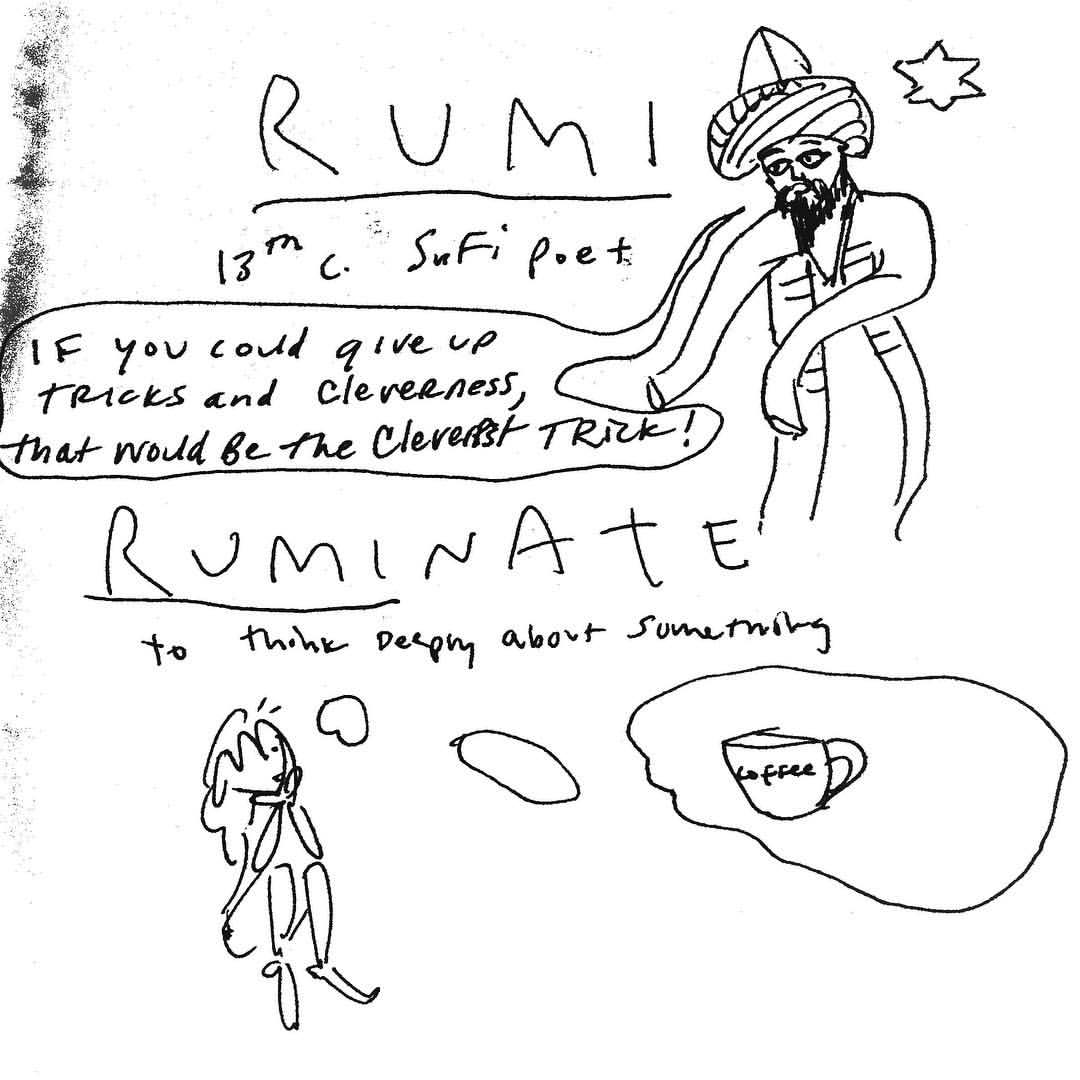 RUMI
13th c. SuFi poet
IF you could give up
TRICKS and CleverNess,
that would Be the Cleverest TRick!
RUMINATE
to think Deeply about something
coffee